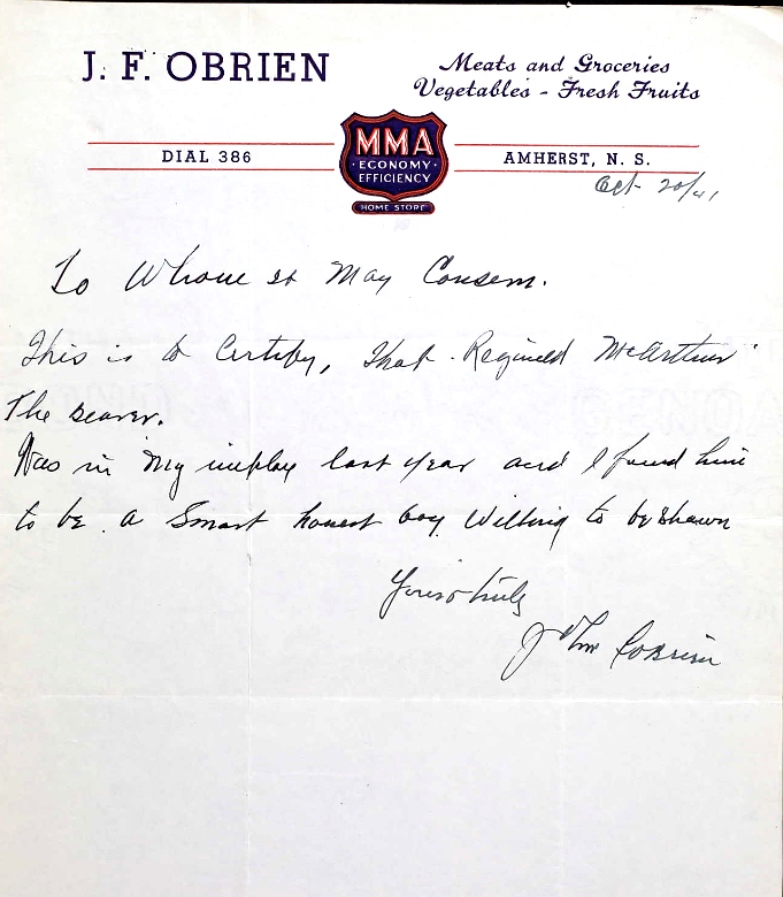 J. F. OBRIEN
Meats and Groceries
Vegetables - Fresh Fruits
MMA
ECONOMY
EFFICIENCY
HOME STORE
DIAL 386
AMHERST, N. S.
Oct 20/41
To Whom it May Consern.
This is to Certify, that Reginald McArthur
The bearer.
Was in My imploy last year and I found him
to be a Smart honest boy Willing to be shown
Yours truly
John OBrien